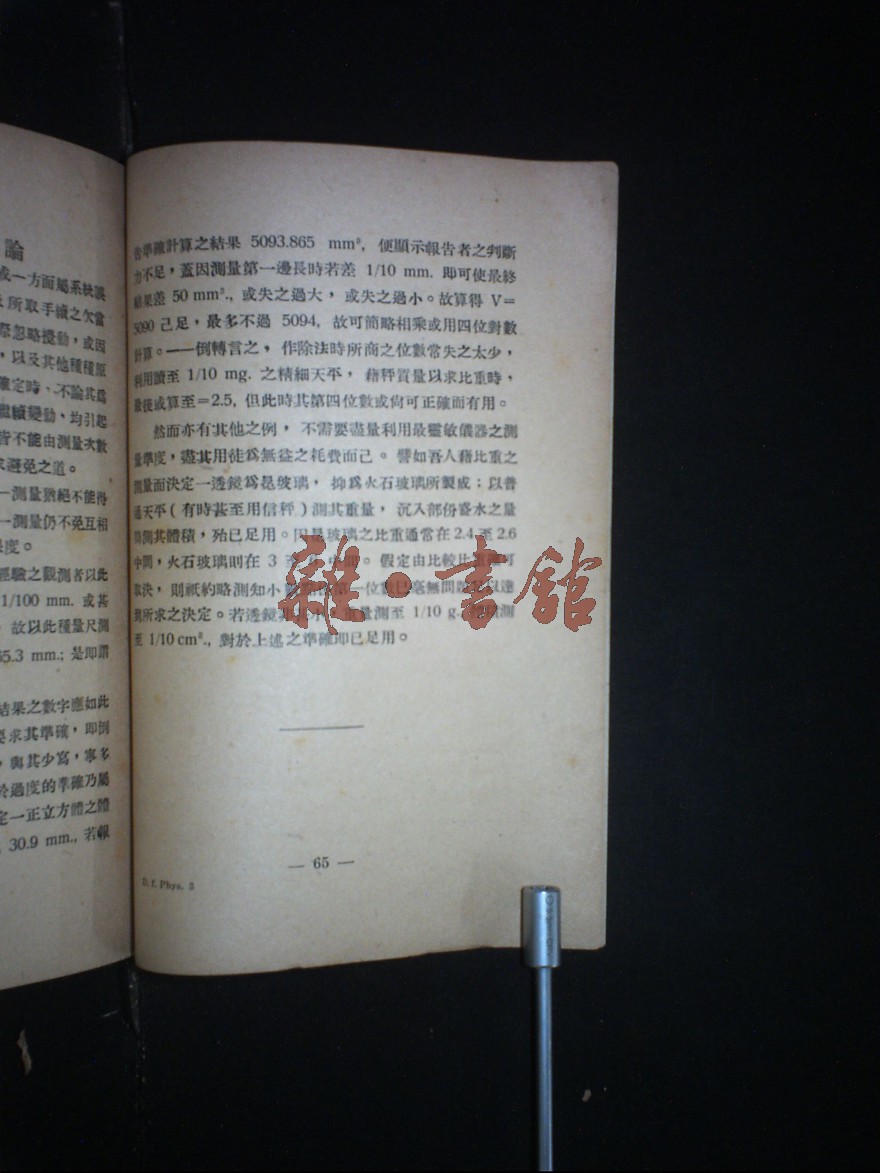 論
或一方面屬系統誤
所取手續之欠當
際忽略擾動，或因
，以及其他種種原
確定時、不論其爲
繼續變動、均引起
皆不能由測量次數
求避免之道。
一測量猶絕不能得
一測量仍不免互相
度。
經驗之觀測者以此
1/100 mm. 或甚
故以此種量尺測
65.3 mm.; 是卽謂
結果之數字應如此
要求其準確，卽倒
，與其少寫，寧多
於過度的準確乃屬
定一正立方體之體
30.9 mm., 若報
告準確計算之結果 5093.865 mm³, 便顯示報告者之判斷
力不足，蓋因測量第一邊長時若差 1/10 mm. 卽可使最終
結果差 50 mm³., 或失之過大， 或失之過小。故算得 V=
5090 己足，最多不過 5094, 故可簡略相乘或用四位對數
計算。——倒轉言之， 作除法時所商之位數常失之太少，
利用讀至 1/10 mg. 之精細天平， 藉秤質量以求比重時，
最後或算至=2.5, 但此時其第四位數或尙可正確而有用。
然而亦有其他之例， 不需要盡量利用最靈敏儀器之測
量準度，盡其用徒爲無益之耗費而己。 譬如吾人藉比重之
測量而決定一透鏡爲昆玻璃， 抑爲火石玻璃所製成：以普
通天平（有時甚至用信秤）測其重量， 沉入部份盛水之量
筒測其體積，殆已足用。因昆玻璃之比重通常在 2.4 至 2.6
中間，火石玻璃則在 3 至 中間。 假定由比較比重卽可
取決， 則祇約略測知小數 第一位數已毫無問題足以達
到所求之決定。若透鏡 重量測至 1/10 g. 體積測
至 1/10 cm³., 對於上述之準確卽已足用。
雜·書館
— 65 —
D. f. Phys. 3